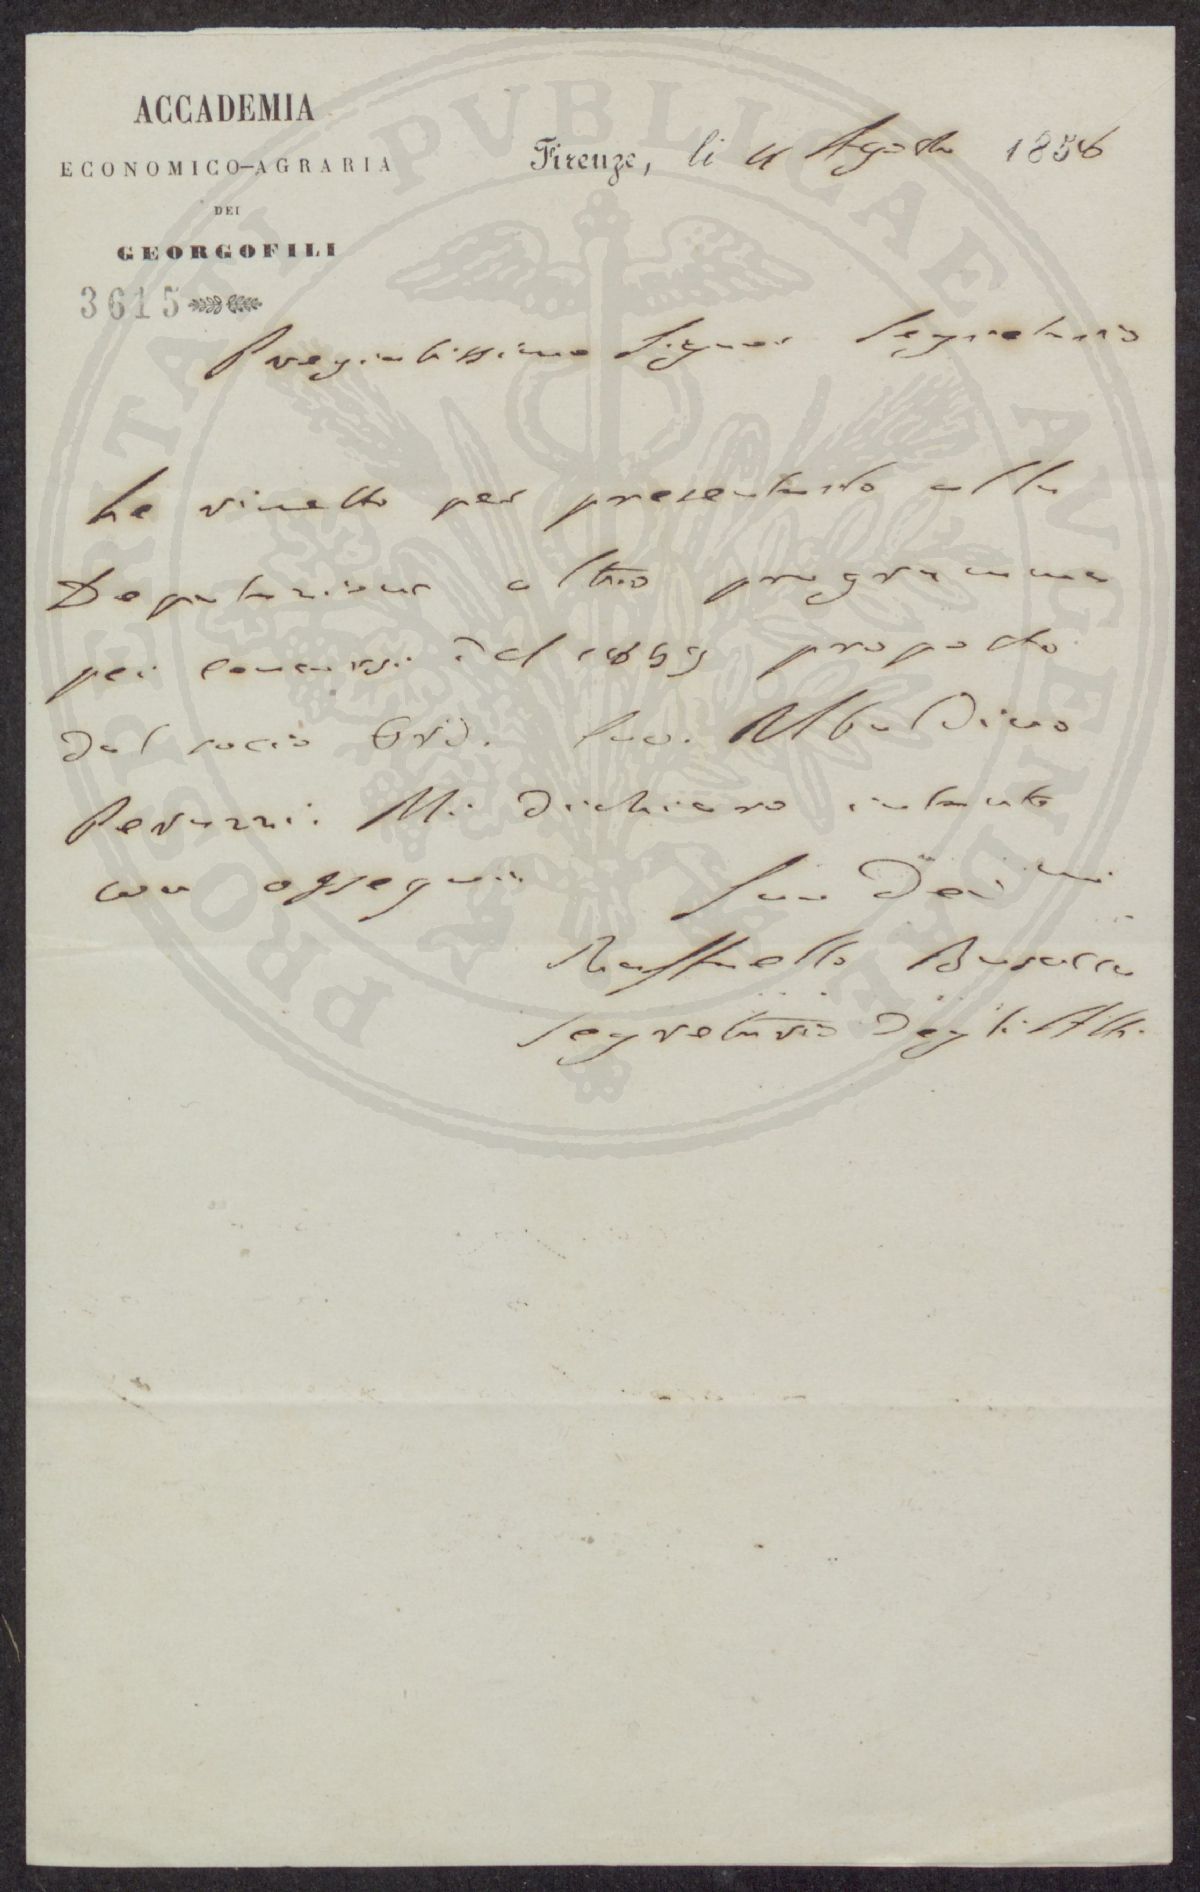 ACCADEMIA
ECONOMICO-AGRARIA
DEI
GEORGOFILI
3615
Firenze, li 4 Agosto 1856
Pregiatissimo Signor Segretario
Le rimetto per presentarlo alla
Deputazione altro programma
pei concorsi del 1859 proposto
dal socio Ord. Cav. Ubaldino
Peruzzi. Mi dichiaro intanto
con ossequio
Suo Dev mo
Raffaello Busacca
Segretario degli Atti.
PROSPERITATI PVBLICAE AVGENDAE